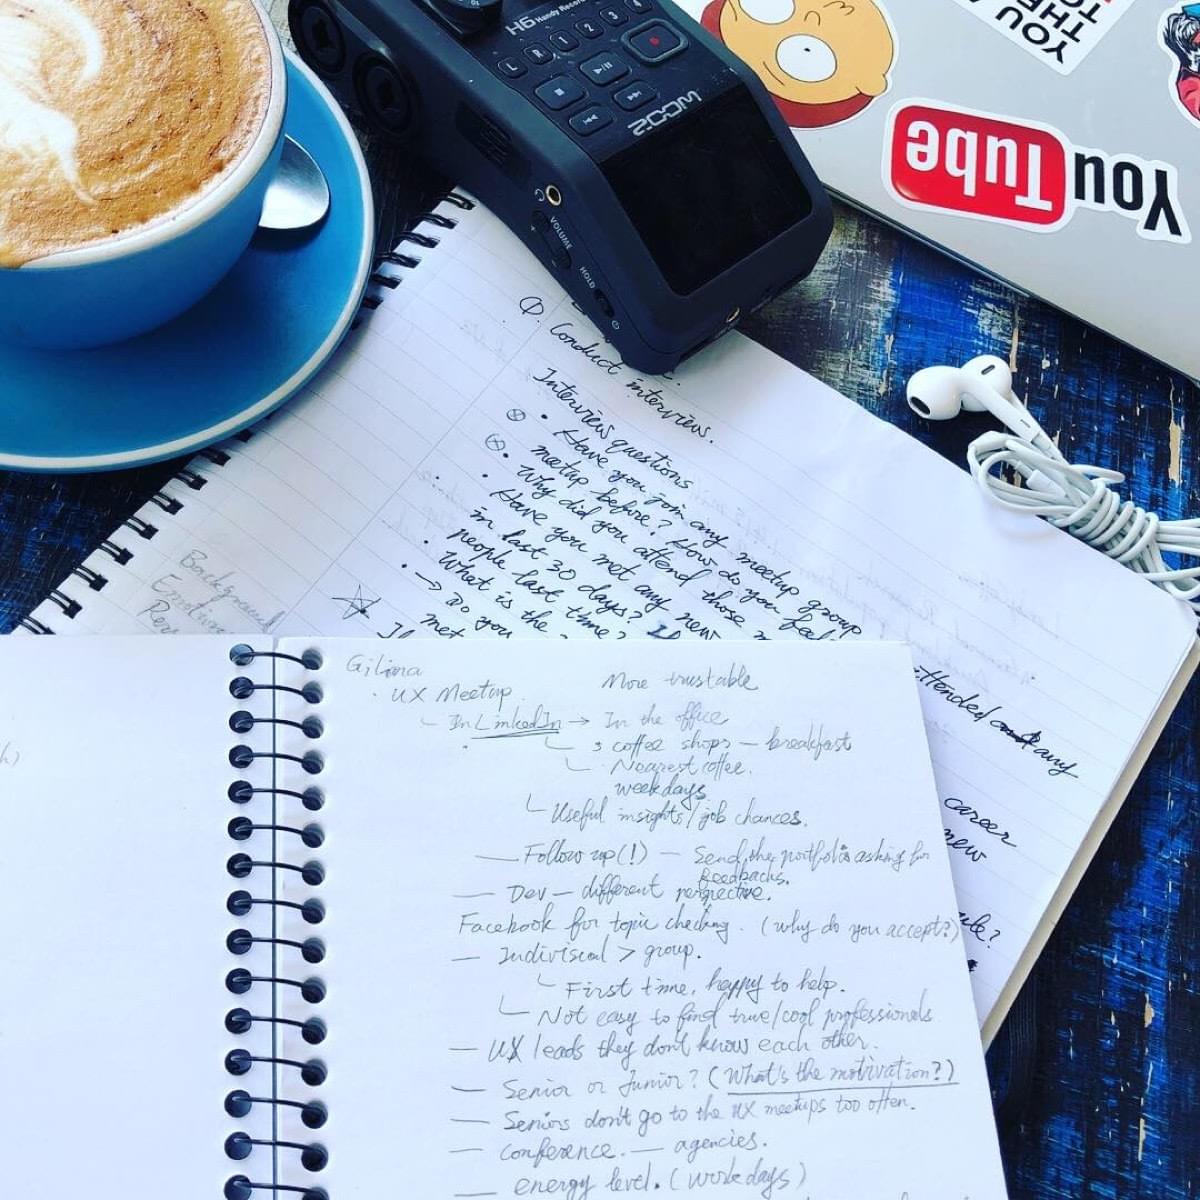 H6 Handy Recorder
L R 1 2 3 4
zoom
VOLUME
+
HOLD
YOU
THE
TO
YouTube
① Conduct interview.
Interview questions
Have you join any meetup group
meetup before? How do you feel
Why did you attend those
Have you met any new
in last 30 days?
people last time?
What is the
→ Do you
met
Background
attended any
career
new
Gilina
· UX Meetup.
More trustable
In LinkedIn → In the office
3 coffee shops — breakfast
Nearest coffee.
weekdays
Useful insights/job chances.
— Follow up(!) — Send the portfolio asking for
feedbacks.
— Dev — different perspective.
Facebook for topic checking. (why do you accept?)
— Individual > group.
First time, happy to help.
Not easy to find true/cool professionals
— UX leads they don't know each other.
— Senior or Junior? (What's the motivation?)
— Seniors don't go to the UX meetups too often.
— conference. — agencies.
— energy level. (workdays)